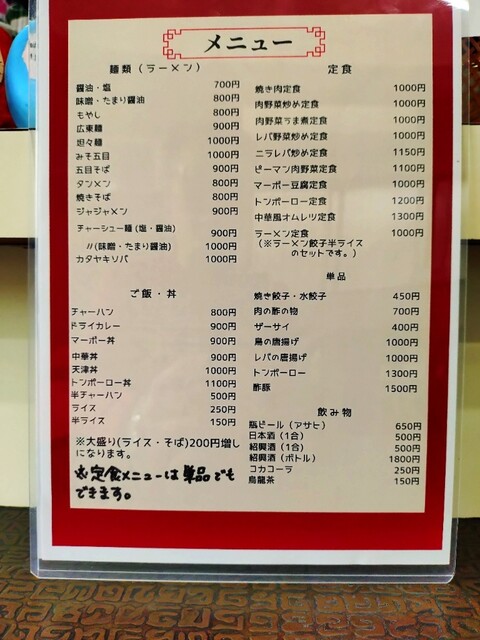 メニュー
麺類(ラーメン)
醤油・塩 700円
味噌・たまり醤油 800円
もやし 800円
広東麺 900円
坦々麺 1000円
みそ五目 1000円
五目そば 900円
タンメン 800円
焼きそば 800円
ジャジャメン 900円
チャーシュー麺(塩・醤油) 900円
〃(味噌・たまり醤油) 1000円
カタヤキソバ 1000円
ご飯・丼
チャーハン 800円
ドライカレー 900円
マーボー丼 900円
中華丼 900円
天津丼 1000円
トンポーロー丼 1100円
半チャーハン 500円
ライス 250円
半ライス 150円
※大盛り(ライス・そば)200円増し
になります。
※定食メニューは単品でも
できます。
定食
焼き肉定食 1000円
肉野菜炒め定食 1000円
肉野菜うま煮定食 1000円
レバ野菜炒め定食 1000円
ニラレバ炒め定食 1150円
ピーマン肉野菜定食 1100円
マーボー豆腐定食 1000円
トンポーロー定食 1200円
中華風オムレツ定食 1300円
ラーメン定食 1000円
(※ラーメン餃子半ライス
のセットです。)
単品
焼き餃子・水餃子 450円
肉の酢の物 700円
ザーサイ 400円
鳥の唐揚げ 1000円
レバの唐揚げ 1000円
トンポーロー 1300円
酢豚 1500円
飲み物
瓶ビール(アサヒ) 650円
日本酒(1合) 500円
紹興酒(1合) 500円
紹興酒(ボトル) 1800円
コカコーラ 250円
烏龍茶 150円